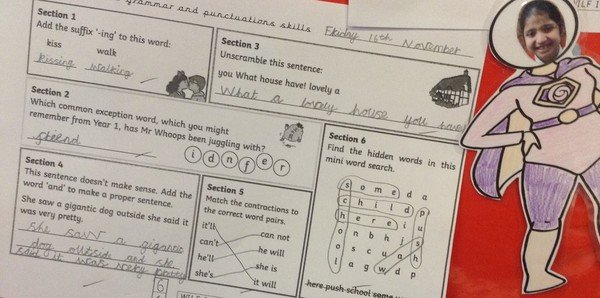 grammar and punctuations skills
Friday 16th November
Section 1
Add the suffix '-ing' to this word:
kiss walk
kissing walking
Section 3
Unscramble this sentence:
you What house have! lovely a
What a lovely house you have
Section 2
Which common exception word, which you might
remember from Year 1, has Mr Whoops been juggling with?
i d n f e r
Section 4
This sentence doesn't make sense. Add the
word 'and' to make a proper sentence.
She saw a gigantic dog outside she said it
was very pretty.
She saw a gigantic
dog outside and she
said it was very pretty
6
Section 5
Match the contractions to
the correct word pairs.
it'll can not
can't he will
he'll she is
she's it will
Section 6
Find the hidden words in this
mini word search.
s o m e d a
c h i l d p
h e r e i u
o n b h j s
o s c u a h
l a g w d p
here push school some